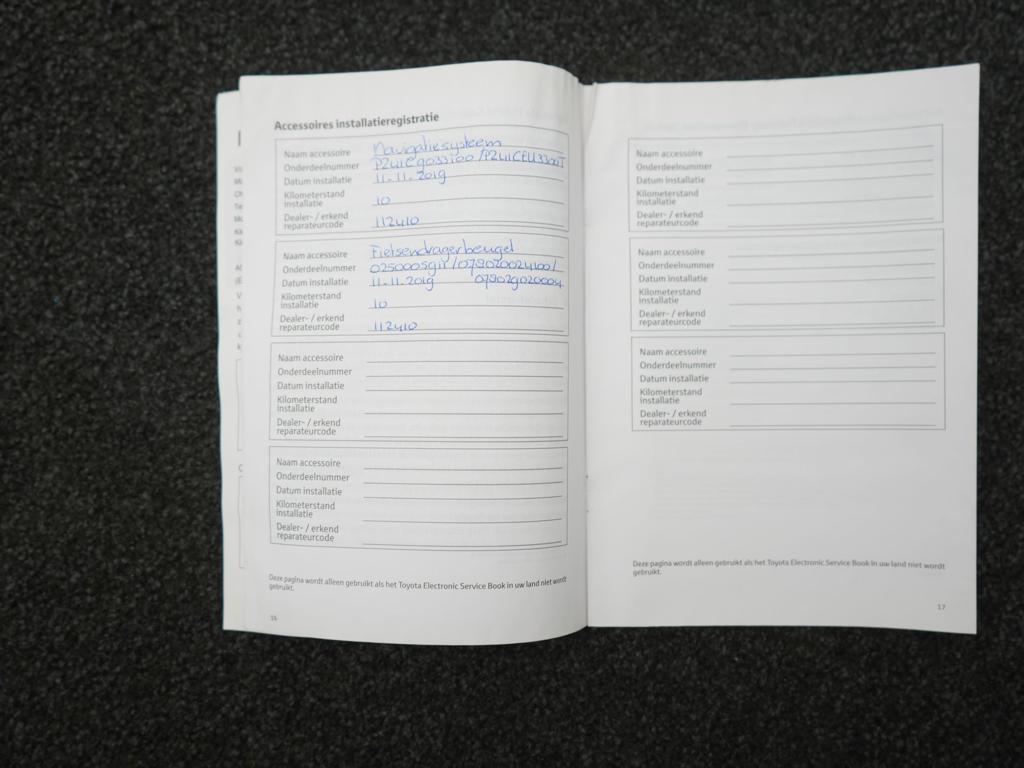 Accessoires installatieregistratie
Naam accessoire Navigatiesysteem
Onderdeelnummer
Datum installatie 11-11-2019
Kilometerstand
installatie 10
Dealer- / erkend
reparateurcode 112410
Naam accessoire Fietsendragerbeugel
Onderdeelnummer
Datum installatie 11-11-2019
Kilometerstand
installatie 10
Dealer- / erkend
reparateurcode 112410
Naam accessoire
Onderdeelnummer
Datum installatie
Kilometerstand
installatie
Dealer- / erkend
reparateurcode
Naam accessoire
Onderdeelnummer
Datum installatie
Kilometerstand
installatie
Dealer- / erkend
reparateurcode
Deze pagina wordt alleen gebruikt als het Toyota Electronic Service Book in uw land niet wordt
gebruikt.
16
Naam accessoire
Onderdeelnummer
Datum installatie
Kilometerstand
installatie
Dealer- / erkend
reparateurcode
Naam accessoire
Onderdeelnummer
Datum installatie
Kilometerstand
installatie
Dealer- / erkend
reparateurcode
Naam accessoire
Onderdeelnummer
Datum installatie
Kilometerstand
installatie
Dealer- / erkend
reparateurcode
Deze pagina wordt alleen gebruikt als het Toyota Electronic Service Book in uw land niet wordt
gebruikt.
17